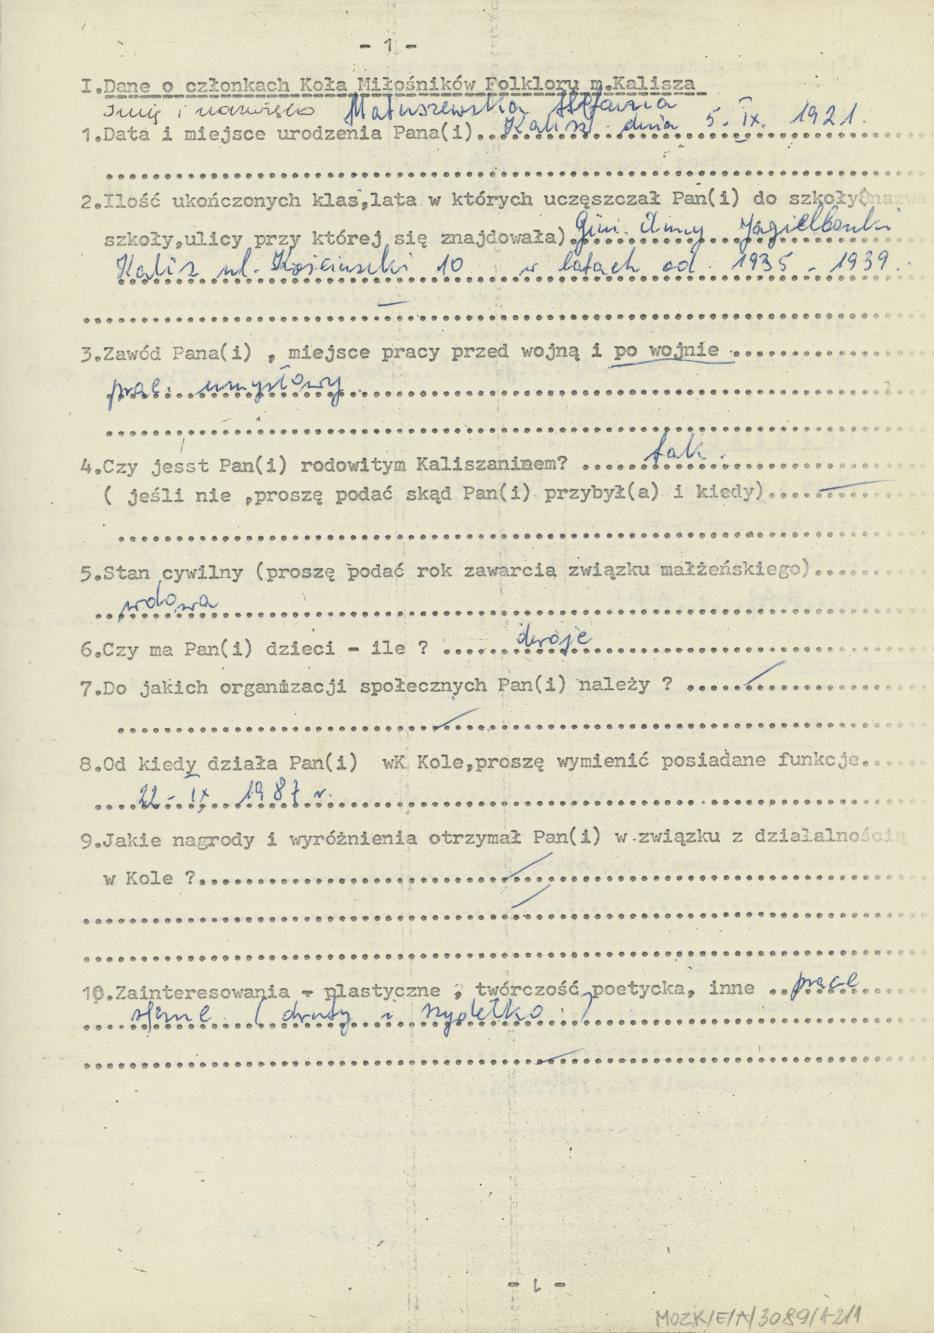 - 1 -
I.Dane o członkach Koła Miłośników Folkloru m.Kalisza
Imię i nazwisko Matuszewska Stefania
1.Data i miejsce urodzenia Pana(i)..Kalisz dnia 5-IX. 1921.
2.Ilość ukończonych klas,lata w których uczęszczał Pan(i) do szkoły(nazwa
szkoły,ulicy przy której się znajdowała).Gim. Anny Jagiellonki
Kalisz ul. Kościuszki 10 w latach od 1935 - 1939.
3.Zawód Pana(i) , miejsce pracy przed wojną i po wojnie
prac. umysłowy
4.Czy jesst Pan(i) rodowitym Kaliszaninem? tak.
( jeśli nie ,proszę podać skąd Pan(i) przybył(a) i kiedy) —
5.Stan cywilny (proszę podać rok zawarcia związku małżeńskiego)
wdowa
6.Czy ma Pan(i) dzieci - ile ? dwoje
7.Do jakich organizacji społecznych Pan(i) należy ?
8.Od kiedy działa Pan(i) wK Kole,proszę wymienić posiadane funkcje
22-IX 1987 r.
9.Jakie nagrody i wyróżnienia otrzymał Pan(i) w związku z działalnością
w Kole ?
10.Zainteresowania - plastyczne , twórczość poetycka, inne prace
ręczne (druty i szydełko)
- 1 -
MOZK/E/A/3089/1-2/1